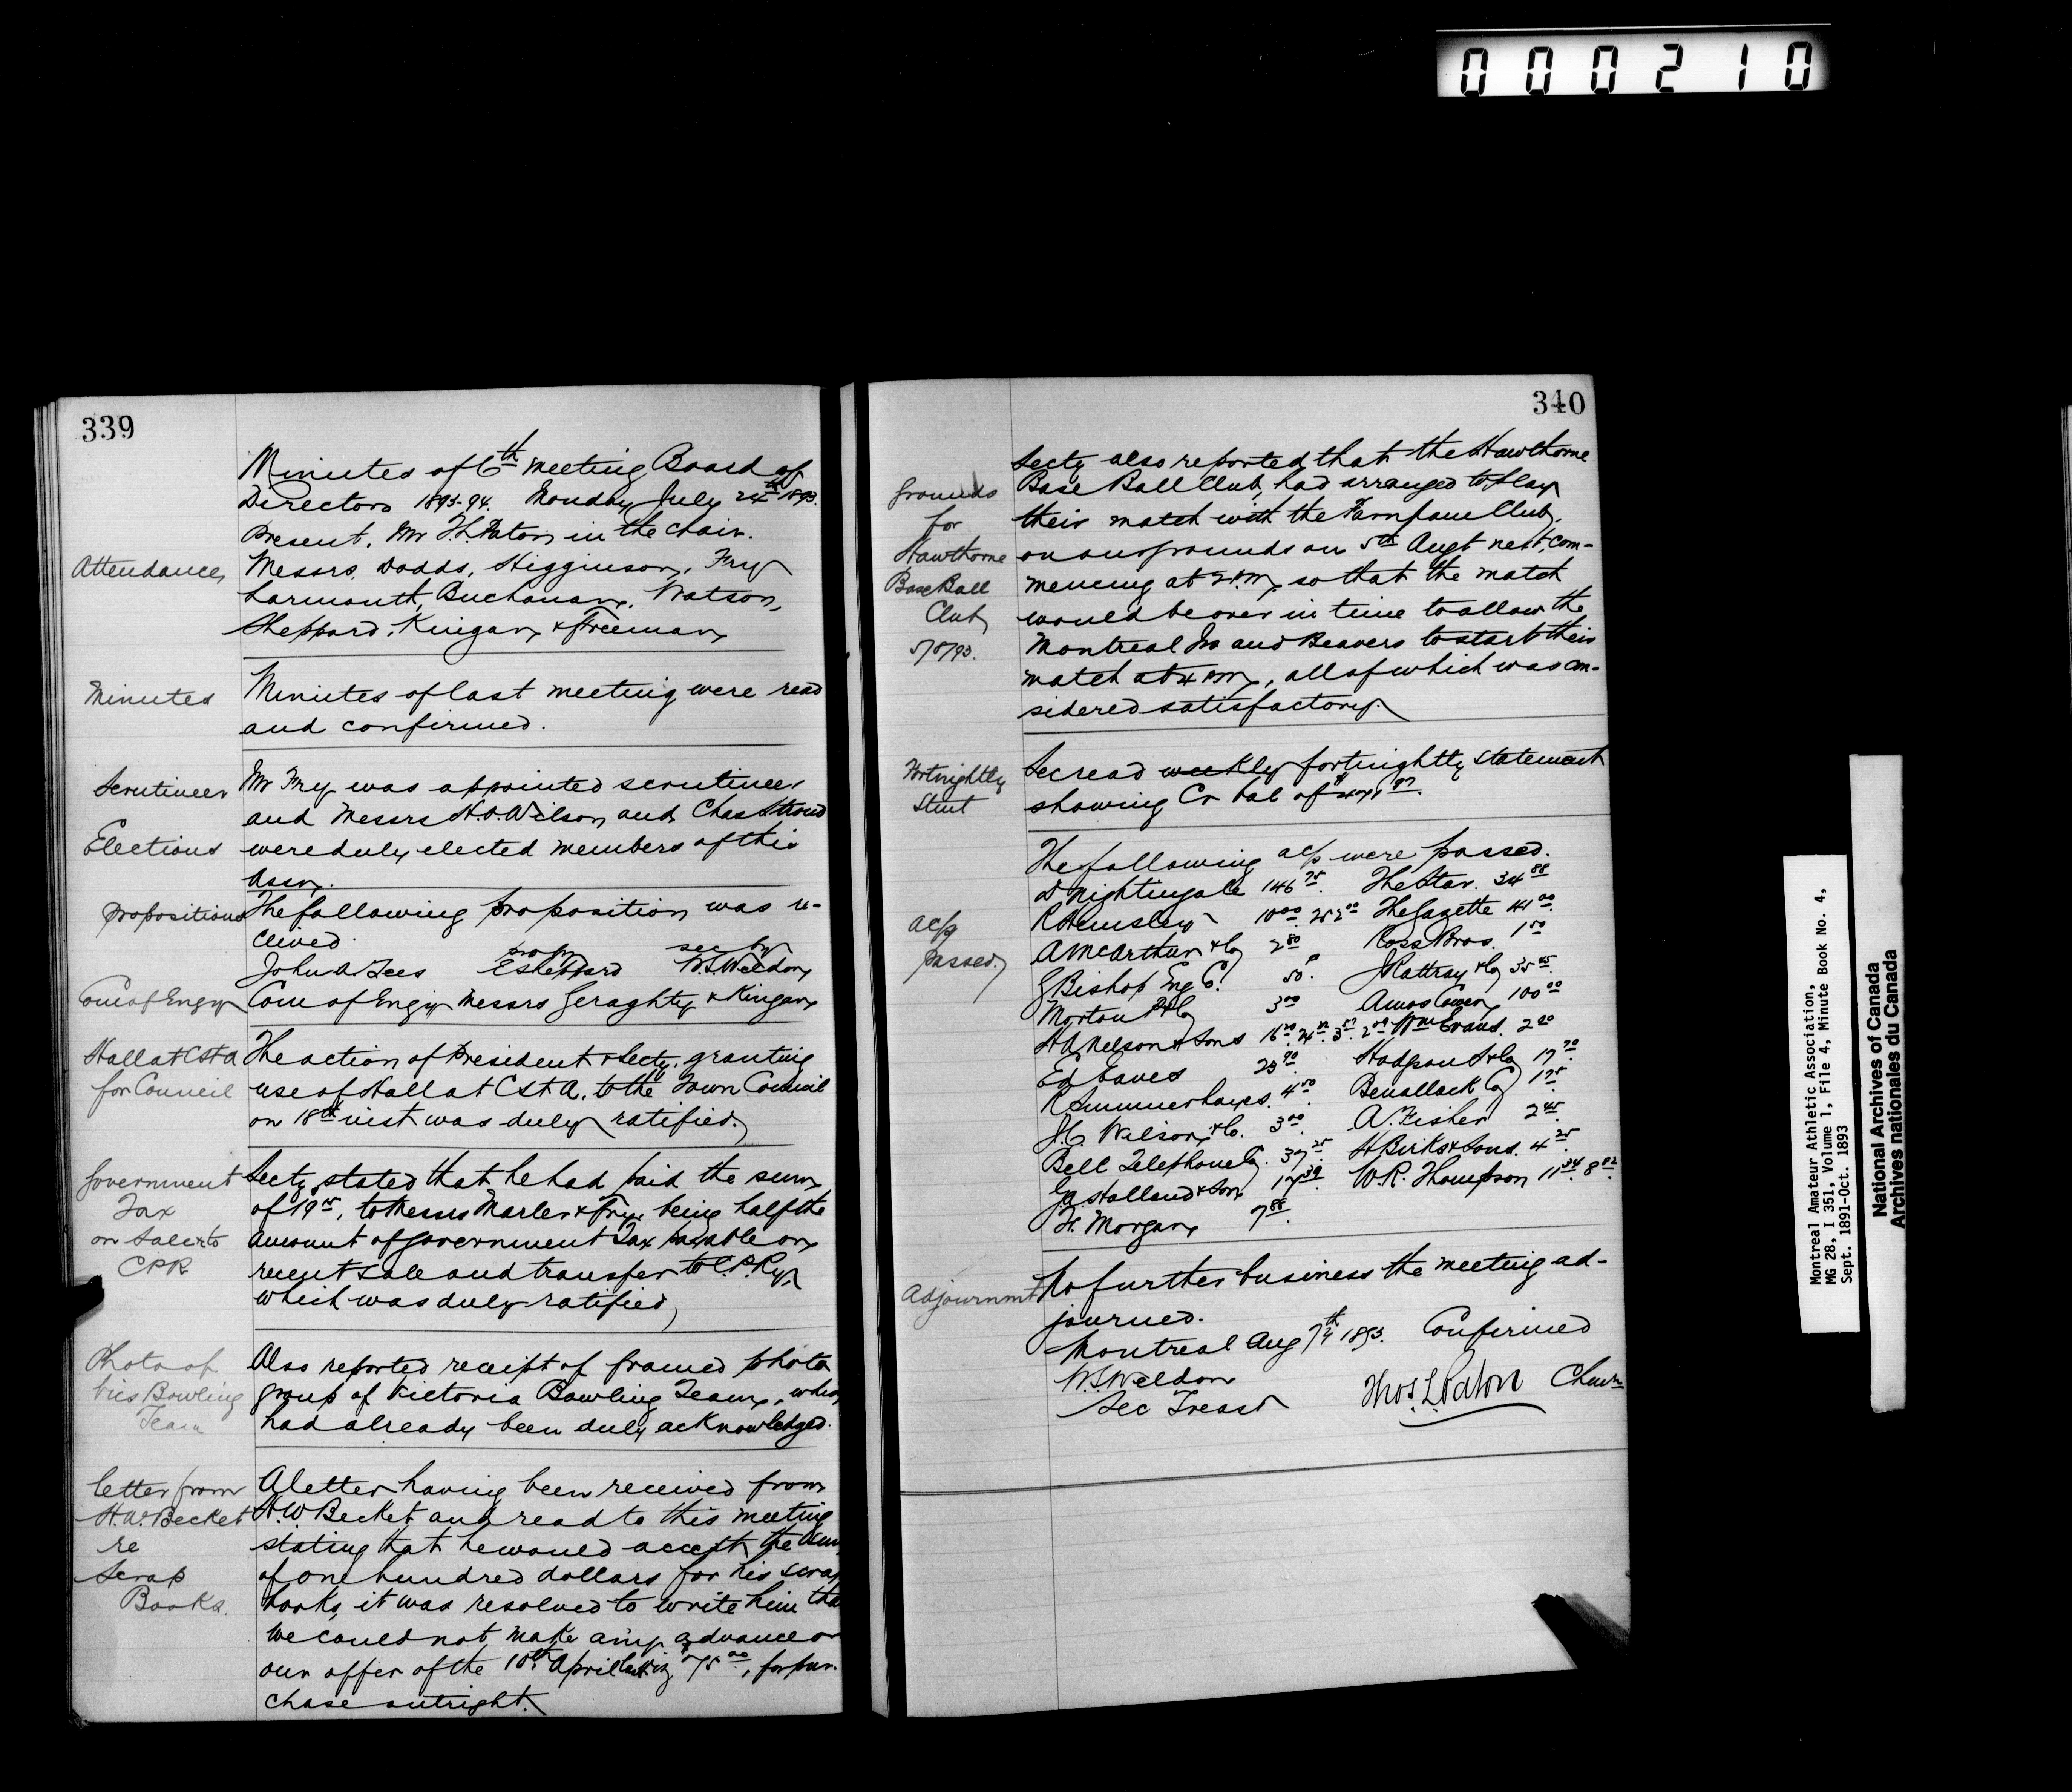 000210
339
Minutes of 6th meeting Board of
Directors 1893-94. Monday July 24th 1893.
Present, Mr T.L. Paton in the chair.
Attendance, Messrs. Dodds, Higginson, Fry
Larmouth, Buchanan, Watson,
Sheppard, Kingan, & Freeman,
Minutes Minutes of last meeting were read
and confirmed.
Scrutineer Mr Fry was appointed scrutineer
and Messrs H.O. Wilson and Chas Stroud
Elections were duly elected members of this
Assn.
Propositions The following proposition was re-
ceived.
prop by sec by
John A Lees E Sheppard W.S. Weldon
Com of Enqy Com of Enqy Messrs Geraghty & Kingan
Hall at CStA The action of President & Secty, granting
for Council use of Hall at C St A. to the Town Council
on 18th inst was duly ratified.
Government Secty stated that he had paid the sum
Tax of 19 , to Messrs Marler & Fry, being half the
on Sale to amount of Government Tax payable on
CPR recent sale and transfer to C.P.Ry,
which was duly ratified,
Photo of Also reported receipt of framed photo
Vics Bowling group of Victoria Bowling Team, which
Team had already been duly acknowledged.
Letter from A letter having been received from
H.W. Becket H.W. Becket and read to this meeting
re stating that he would accept the sum
Scrap of one hundred dollars for his scrap
Books. books, it was resolved to write him that
we could not make any advance on
our offer of the 10th April viz 75 00, for pur-
chase outright.
340
Secty also reported that the Hawthorne
Grounds Base Ball Club, had arranged to play
for their match with the Farnham Club,
Hawthorne on our grounds on 5th Augt next, com-
Base Ball mencing at 2 P.M. so that the match
Club would be over in time to allow the
5/8/93. Montreal Jrs and Beavers to start their
match at 4 P.M., all of which was con-
sidered satisfactory.
Fortnightly Sec read weekly fortnightly statement
Stmt showing Cr bal of
The following a/cs were passed.
D Nightingale 146 75. The Star. 34 88
R Hemsley 10 00. 252 00 The Gazette 41 00.
a/cs A McArthur & Co 2 80 Ross Bros. 1 50
passed, G Bishop Eng Co. 50. J Rattray & Co 35
Morton P & Co 3 00 Amos Cowen, 100 00
H A Nelson & Sons 16 . 24 . 3 . 2 . Wm Evans. 2 20
Ed Eaves 23 90 Hodgson S & Co 17 70.
R Summerhayes. 4 50. Benallack Co 1 75.
J.C. Wilson & Co. 3 00. A. Fisher 2 45.
Bell Telephone Co. 37 25 H Birks & Sons. 4 25.
G A Holland & Son 17 39. W.R. Thompson 11 34. 8 82.
H. Morgan, 7 88.
Adjournmt No further business the meeting ad-
journed.
Montreal Aug 7th 1893. Confirmed
W.S. Weldon
Sec Treasr
Thos. L. Paton Chairmn
Montreal Amateur Athletic Association,
MG 28, I 351, Volume 1, File 4, Minute Book No. 4,
Sept. 1891-Oct. 1893
National Archives of Canada
Archives nationales du Canada